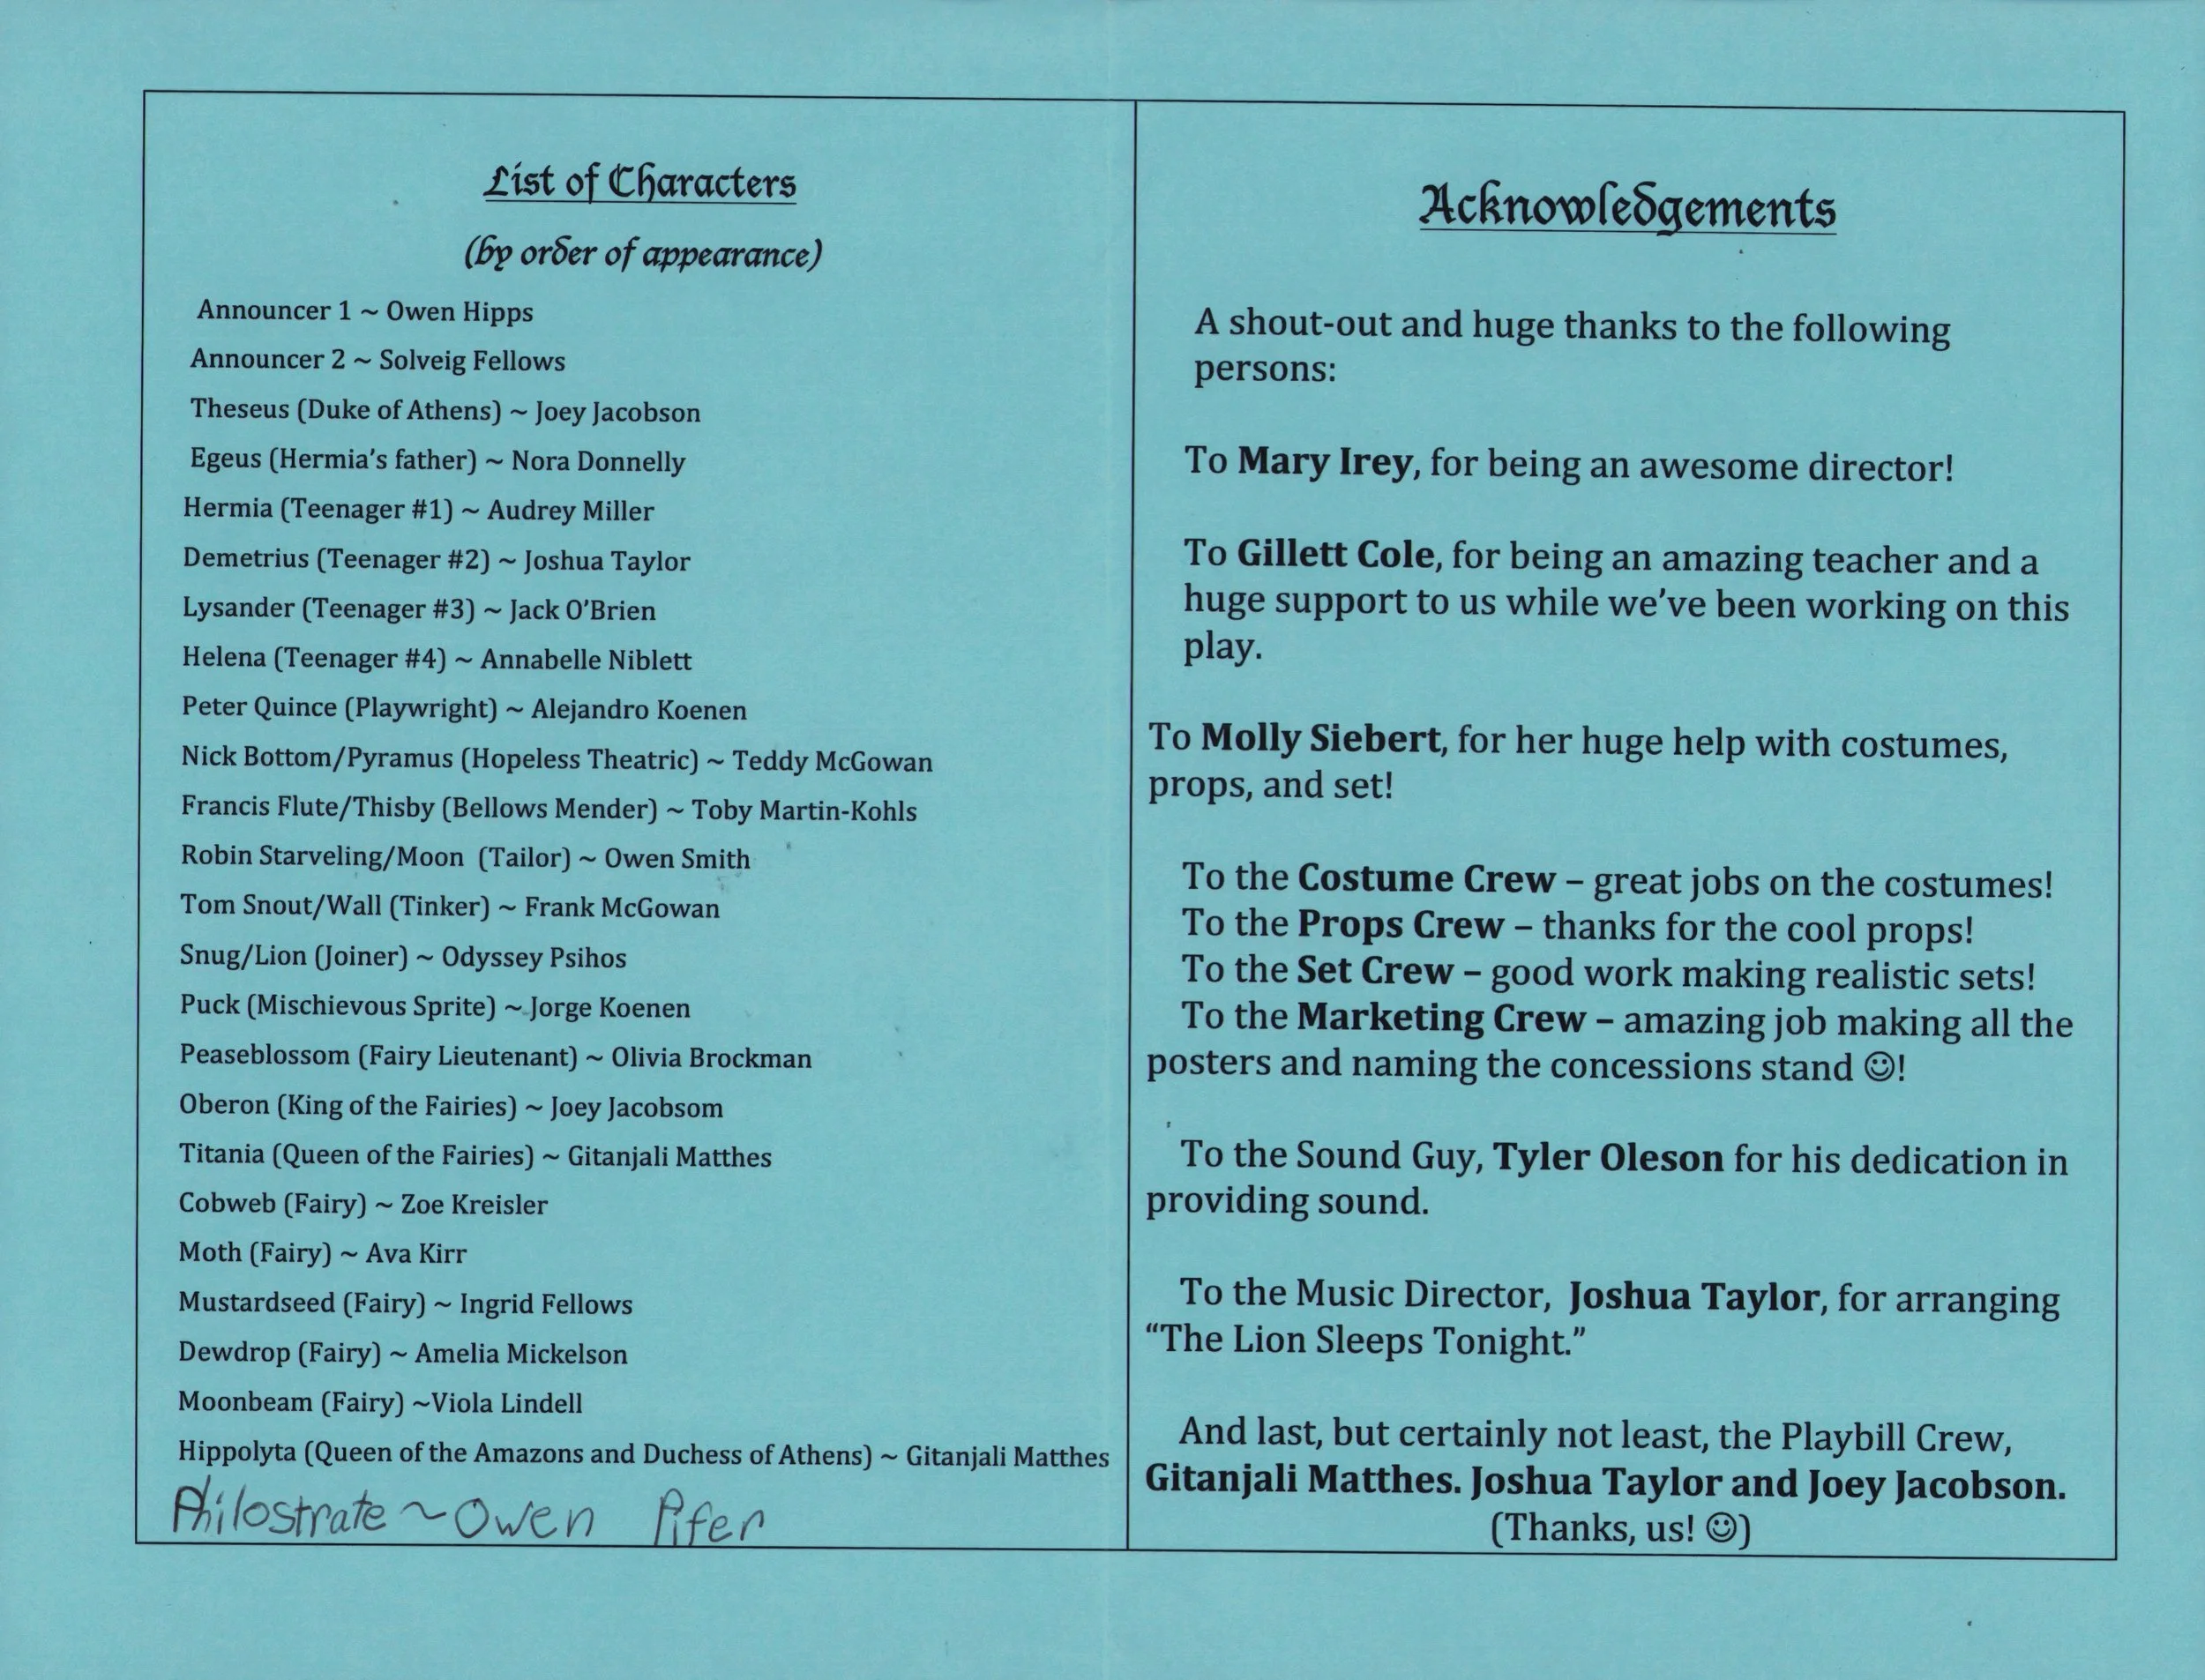 List of Characters
(by order of appearance)
Announcer 1 ~ Owen Hipps
Announcer 2 ~ Solveig Fellows
Theseus (Duke of Athens) ~ Joey Jacobson
Egeus (Hermia's father) ~ Nora Donnelly
Hermia (Teenager #1) ~ Audrey Miller
Demetrius (Teenager #2) ~ Joshua Taylor
Lysander (Teenager #3) ~ Jack O'Brien
Helena (Teenager #4) ~ Annabelle Niblett
Peter Quince (Playwright) ~ Alejandro Koenen
Nick Bottom/Pyramus (Hopeless Theatric) ~ Teddy McGowan
Francis Flute/Thisby (Bellows Mender) ~ Toby Martin-Kohls
Robin Starveling/Moon (Tailor) ~ Owen Smith
Tom Snout/Wall (Tinker) ~ Frank McGowan
Snug/Lion (Joiner) ~ Odyssey Psihos
Puck (Mischievous Sprite) ~ Jorge Koenen
Peaseblossom (Fairy Lieutenant) ~ Olivia Brockman
Oberon (King of the Fairies) ~ Joey Jacobsom
Titania (Queen of the Fairies) ~ Gitanjali Matthes
Cobweb (Fairy) ~ Zoe Kreisler
Moth (Fairy) ~ Ava Kirr
Mustardseed (Fairy) ~ Ingrid Fellows
Dewdrop (Fairy) ~ Amelia Mickelson
Moonbeam (Fairy) ~Viola Lindell
Hippolyta (Queen of the Amazons and Duchess of Athens) ~ Gitanjali Matthes
Philostrate ~ Owen Pifer
Acknowledgements
A shout-out and huge thanks to the following
persons:
To Mary Irey, for being an awesome director!
To Gillett Cole, for being an amazing teacher and a
huge support to us while we've been working on this
play.
To Molly Siebert, for her huge help with costumes,
props, and set!
To the Costume Crew – great jobs on the costumes!
To the Props Crew – thanks for the cool props!
To the Set Crew – good work making realistic sets!
To the Marketing Crew – amazing job making all the
posters and naming the concessions stand ☺!
To the Sound Guy, Tyler Oleson for his dedication in
providing sound.
To the Music Director, Joshua Taylor, for arranging
“The Lion Sleeps Tonight.”
And last, but certainly not least, the Playbill Crew,
Gitanjali Matthes. Joshua Taylor and Joey Jacobson.
(Thanks, us! ☺)